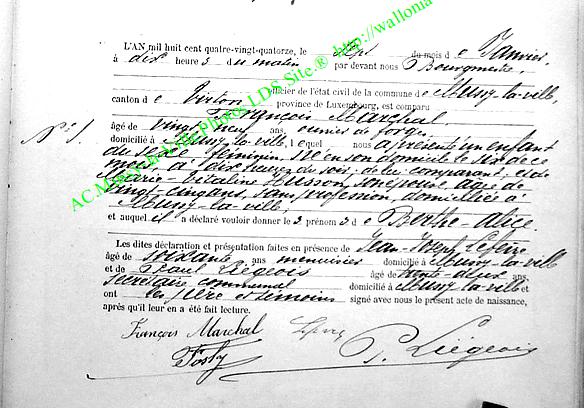 L'AN mil huit cent quatre-vingt-quatorze, le sept du mois de Janvier
à dix heures du matin par devant nous Bourgmestre,
officier de l'état civil de la commune de Mussy-la-ville,
canton de Virton province de Luxembourg, est comparu
François Marchal,
N° 1.
âgé de vingt neuf ans, ouvrier de forge,
domicilié à Mussy-la-ville, lequel nous a présenté un enfant
du sexe féminin, né en son domicile le six de ce
mois, à deux heures du soir; de lui comparant, et de
Marie Husson, son épouse, âgée de
vingt-cinq ans, sans profession, domiciliée à
Mussy-la-ville,
et auquel il a déclaré vouloir donner les prénoms de Berthe-Alice.
Les dites déclaration et présentation faites en présence de Jean-Joseph
âgé de soixante ans menuisier domicilié à Mussy-la-ville
et de Paul Liégeois âgé de trente-deux ans,
secrétaire communal domicilié à Mussy-la-ville et
ont les père et témoins signé avec nous le présent acte de naissance,
après qu'il leur en a été fait lecture.
François Marchal
P. Liégeois
AC Mussy-la-Ville Photos LDS Site ® http://wallonia